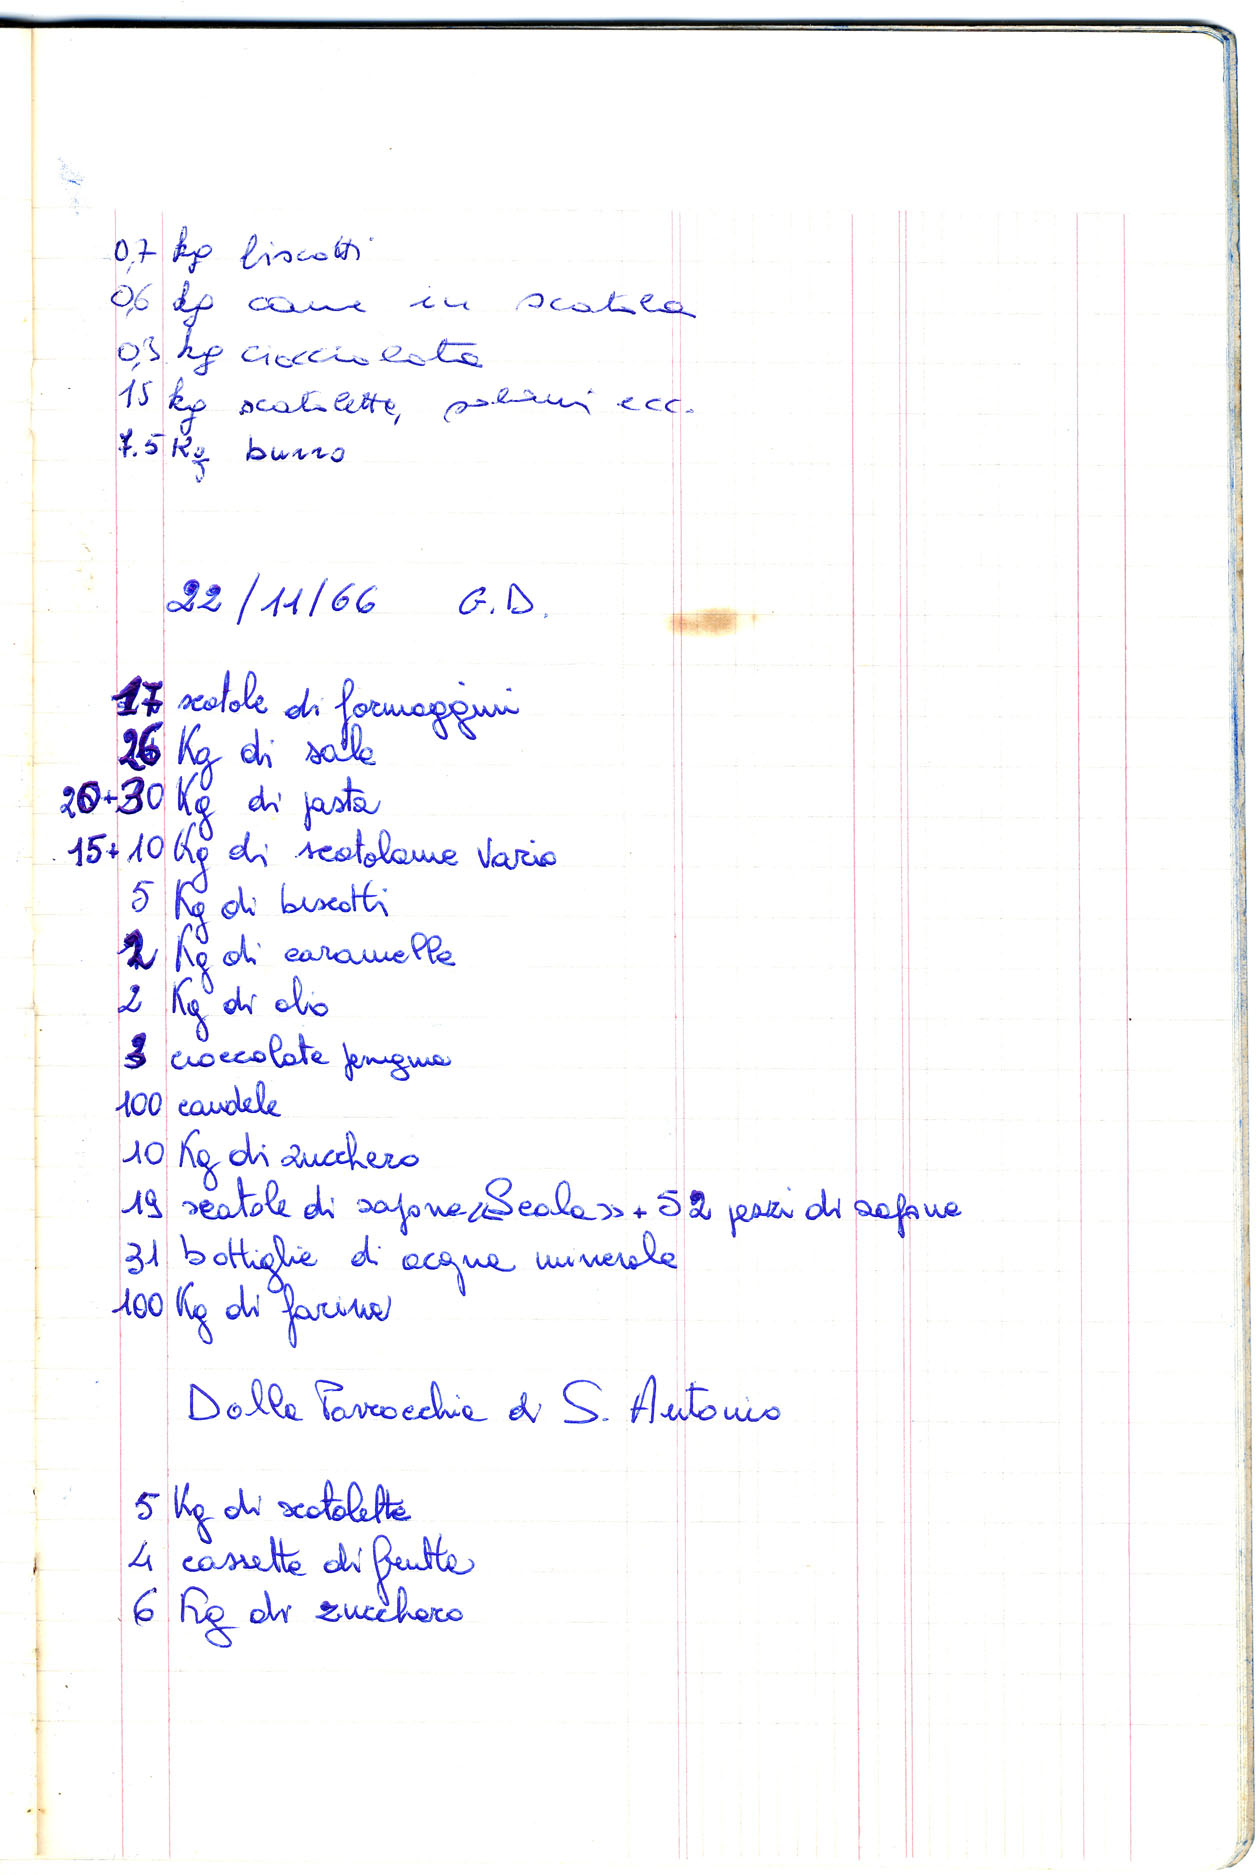 0,7 kg biscotti
0,6 kg carne in scatola
0,3 kg cioccolata
15 kg scatolette, salami ecc.
7.5 Kg burro
22/11/66 G.D.
17 scatole di formaggini
26 Kg di sale
20+30 Kg di pasta
15+10 Kg di scatolame vario
5 Kg di biscotti
2 Kg di caramelle
2 Kg di olio
3 cioccolate perugina
100 candele
10 Kg di zucchero
19 scatole di sapone «Scala» + 52 pezzi di sapone
31 bottiglie di acqua minerale
100 Kg di farina
Dalla Parrocchia di S. Antonio
5 Kg di scatolette
4 cassette di frutta
6 Kg di zucchero